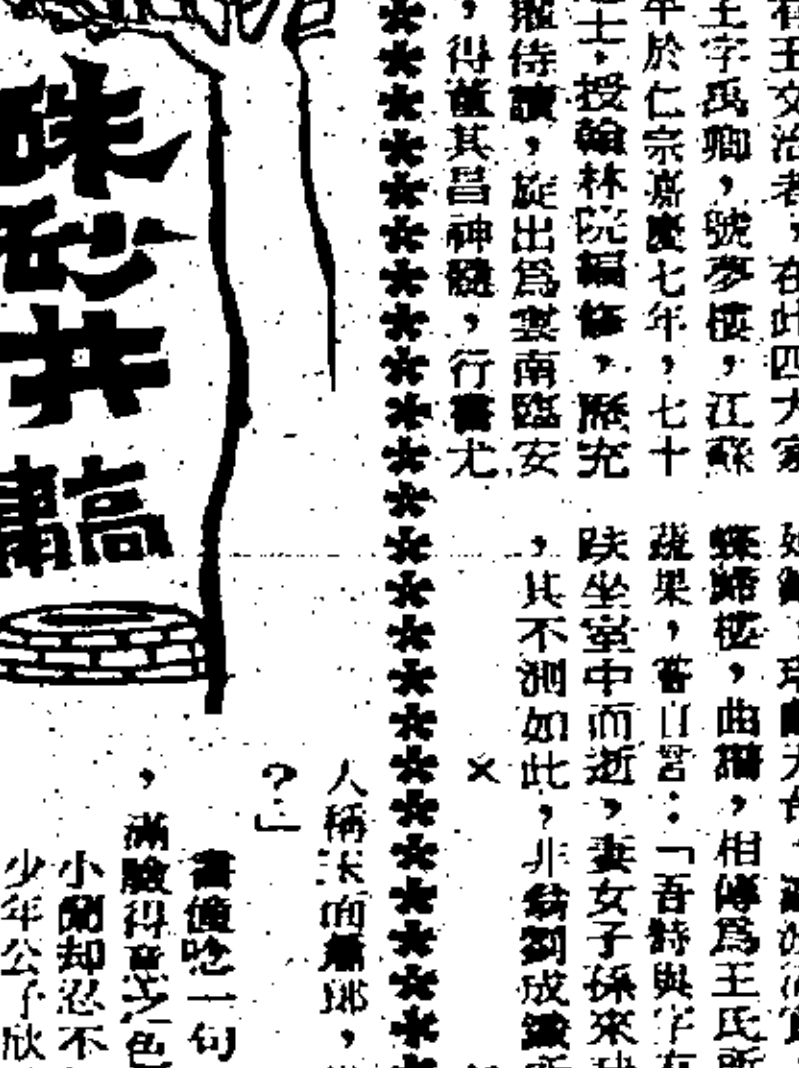 王文治者，在此四大家
王字禹卿，號夢樓，江蘇
年於仁宗嘉慶七年，七十
士，授翰林院編修，歷充
侍讀，旋出爲雲南臨安
，得董其昌神髓，行書尤
樓，曲譜，相傳爲王氏所
蔬果，嘗自署：「吾詩與字有
趺坐室中而逝，妻女子孫來
，其不測如此，非翁劉成鐵所
×
硃砂井
高
人稱
，
？」
書僮唸一句
，滿臉得意之色
小蘭却忍不
少年公子欣